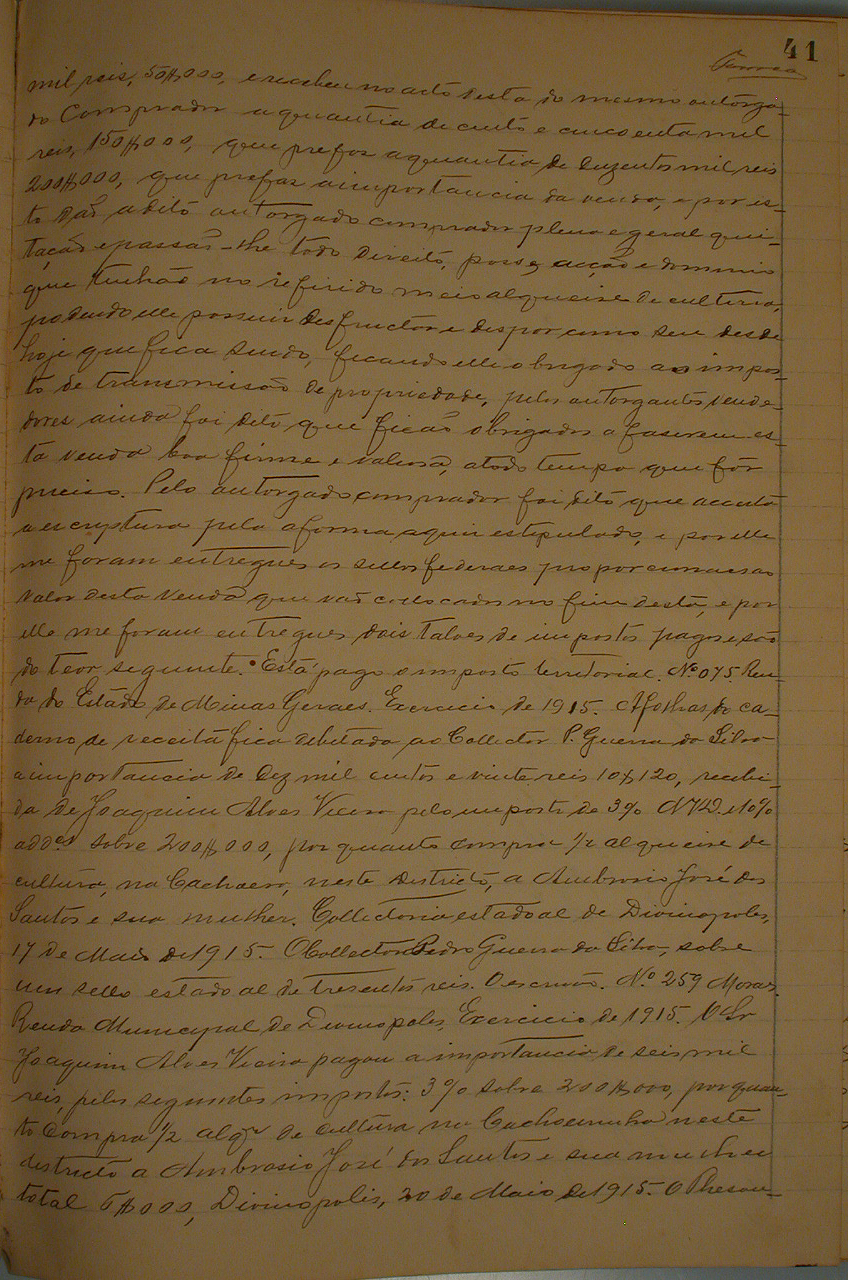 41
mil reis, 50$000, e recebeu no acto desta do mesmo outorga-
do Comprador a quantia de cento e cincoenta mil
reis, 150$000, que prefaz a quantia de duzentos mil reis
200$000, que prefaz a importancia da venda, e por es-
to dão a dito outorgado comprador plena e geral qui-
tação e passão-lhe todo direito, posse, acção e dominio
que tinhão no refirido meio alqueire de cultura,
podendo elle possuir desfructar e dispor como seu desde
hoje que fica sendo, ficando elle obrigado ao impos-
to de transmissão de propriedade, pelos outorgantes vende-
dores ainda foi dito que ficão obrigados a faserem es-
ta venda boa firme e valiosa, a todo tempo que fôr
preciso. Pelo outorgado comprador foi dito que acceita
a escryptura pela a forma aqui estipulada, e por elle
me foram entregues os sellos federaes proporcionaes ao
valor desta venda que vão collocados no fim desta, e por
elle me foram entregues dois talões de impostos pagos e são
do teor seguinte. Está pago o imposto territorial. Nº 075. Ren-
da do Estado de Minas Geraes. Exercicio de 1915. A folhas do ca-
derno de receita fica debitado ao Collector P. Guerra da Silva
a importancia de dez mil centos e vinte reis 10$120, recebi-
da de Joaquim Alves Vieira pelo imposto de 3% e 10%
add.es sobre 200$000, por quanto compra 1/2 alqueire de
cultura, na Cachoeira, neste districto, a Ambrosio José dos
Santos e sua mulher. Collectoria estadoal de Divinopolis,
17 de Maio de 1915. O Collector Pedro Guerra da Silva, sobre
um sello estadoal de tresentos reis. O escrivão. Nº 259 Moraes.
Renda Municipal de Divinopolis, Exercicio de 1915. O Sr
Joaquim Alves Vieira pagou a importancia de seis mil
reis, pelos seguintes impostos: 3% sobre 200$000, por quan-
to Compra 1/2 alqr de cultura na Cachoeirinha neste
districto a Ambrosio José dos Santos e sua mulher
total 6$000, Divinopolis, 20 de Maio de 1915. O Thesou-